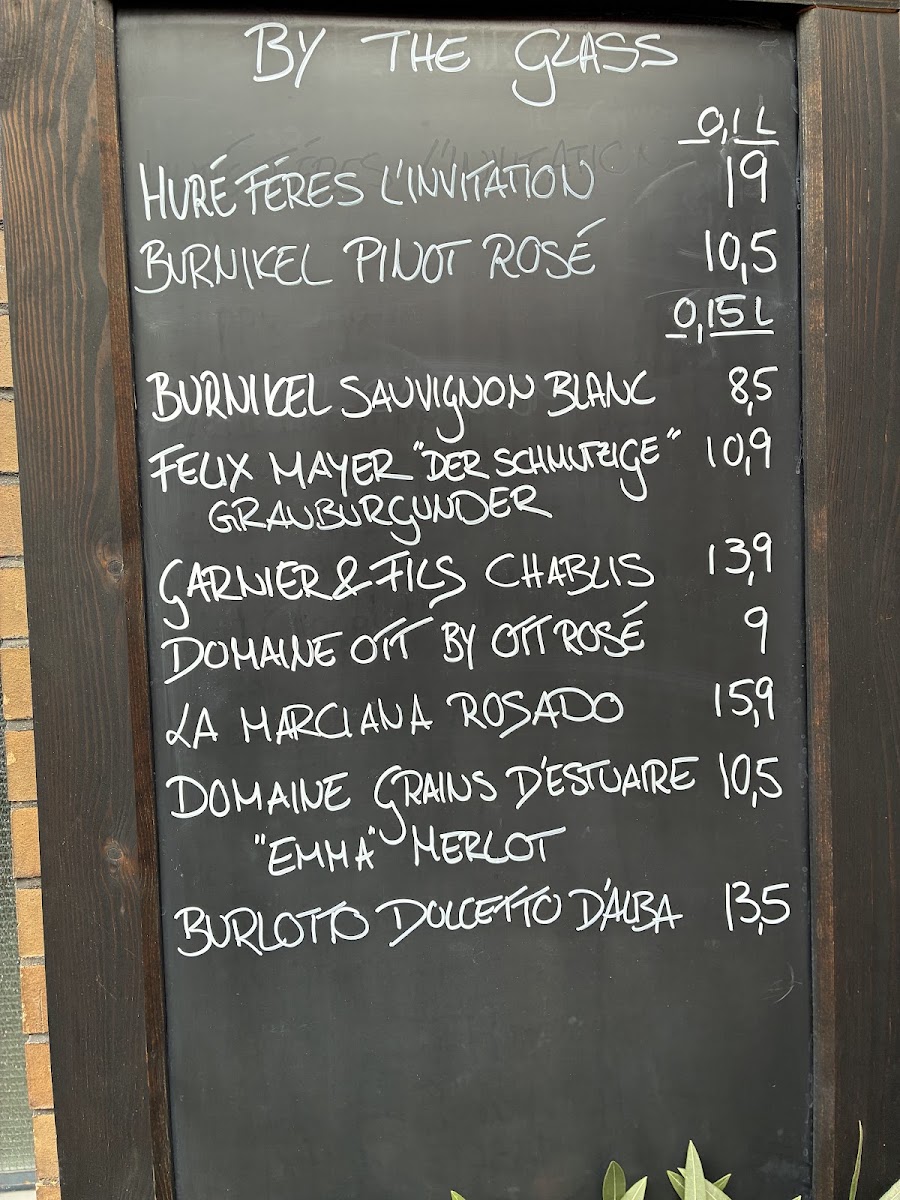 BY THE GLASS
0,1 L
HURÉ FÉRES L'INVITATION 19
BURNIKEL PINOT ROSÉ 10,5
0,15 L
BURNIKEL SAUVIGNON BLANC 8,5
FELIX MAYER "DER SCHMUTZIGE" 10,9
GRAUBURGUNDER
GARNIER & FILS CHABLIS 13,9
DOMAINE OTT BY OTT ROSÉ 9
LA MARCIANA ROSADO 15,9
DOMAINE GRAINS D'ESTUAIRE 10,5
"EMMA" MERLOT
BURLOTTO DOLCETTO D'ALBA 13,5